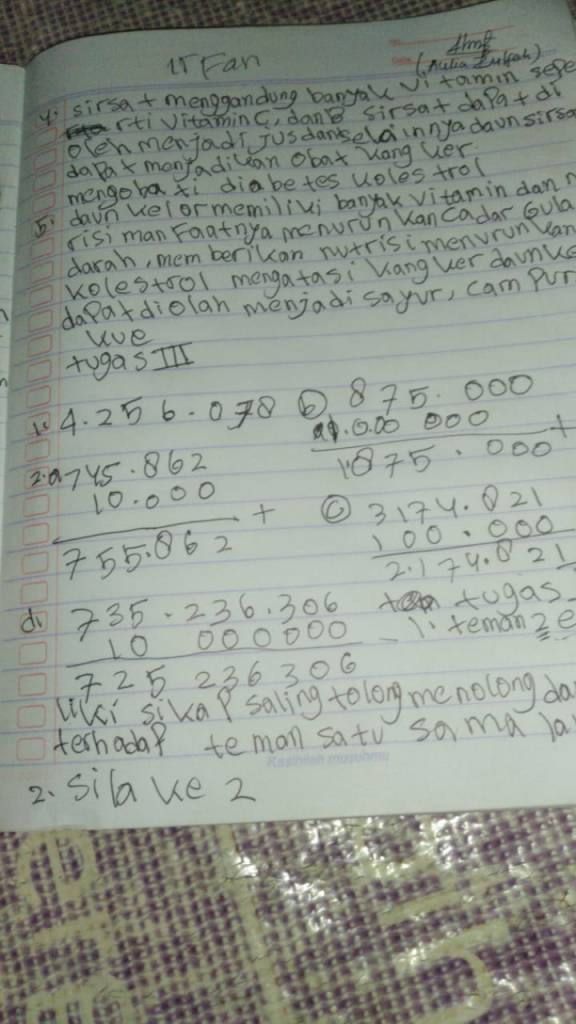 Fan
4. sirsat menggandung banyak vitamin sepe
rti vitamin C, dan B sirsat dapat di
oleh menjadi, jus dan selainnya daun sirsa
dapat manjadikan obat kangker.
mengobati diabetes kolestrol
5. daun kelor memiliki banyak vitamin dan n
risi manfaatnya menurunkan cadar Gula
darah, memberikan nutrisi menurunkan
kolestrol mengatasi kangker daunke
dapat diolah menjadi sayur, campur
kue
tugas III
1. 4.256.078 b) 875.000
000 +
1.875.000
2.a 745.862
10.000
+
755.862
c) 3174.821
100.000
2.174.821
d. 735.236.306
10 000000 -
725 236 306
tugas
1. teman2 e
liki sikap saling tolong menolong da
terhadap teman satu sama la
Kasihilah musuhmu
2. Sila ke 2